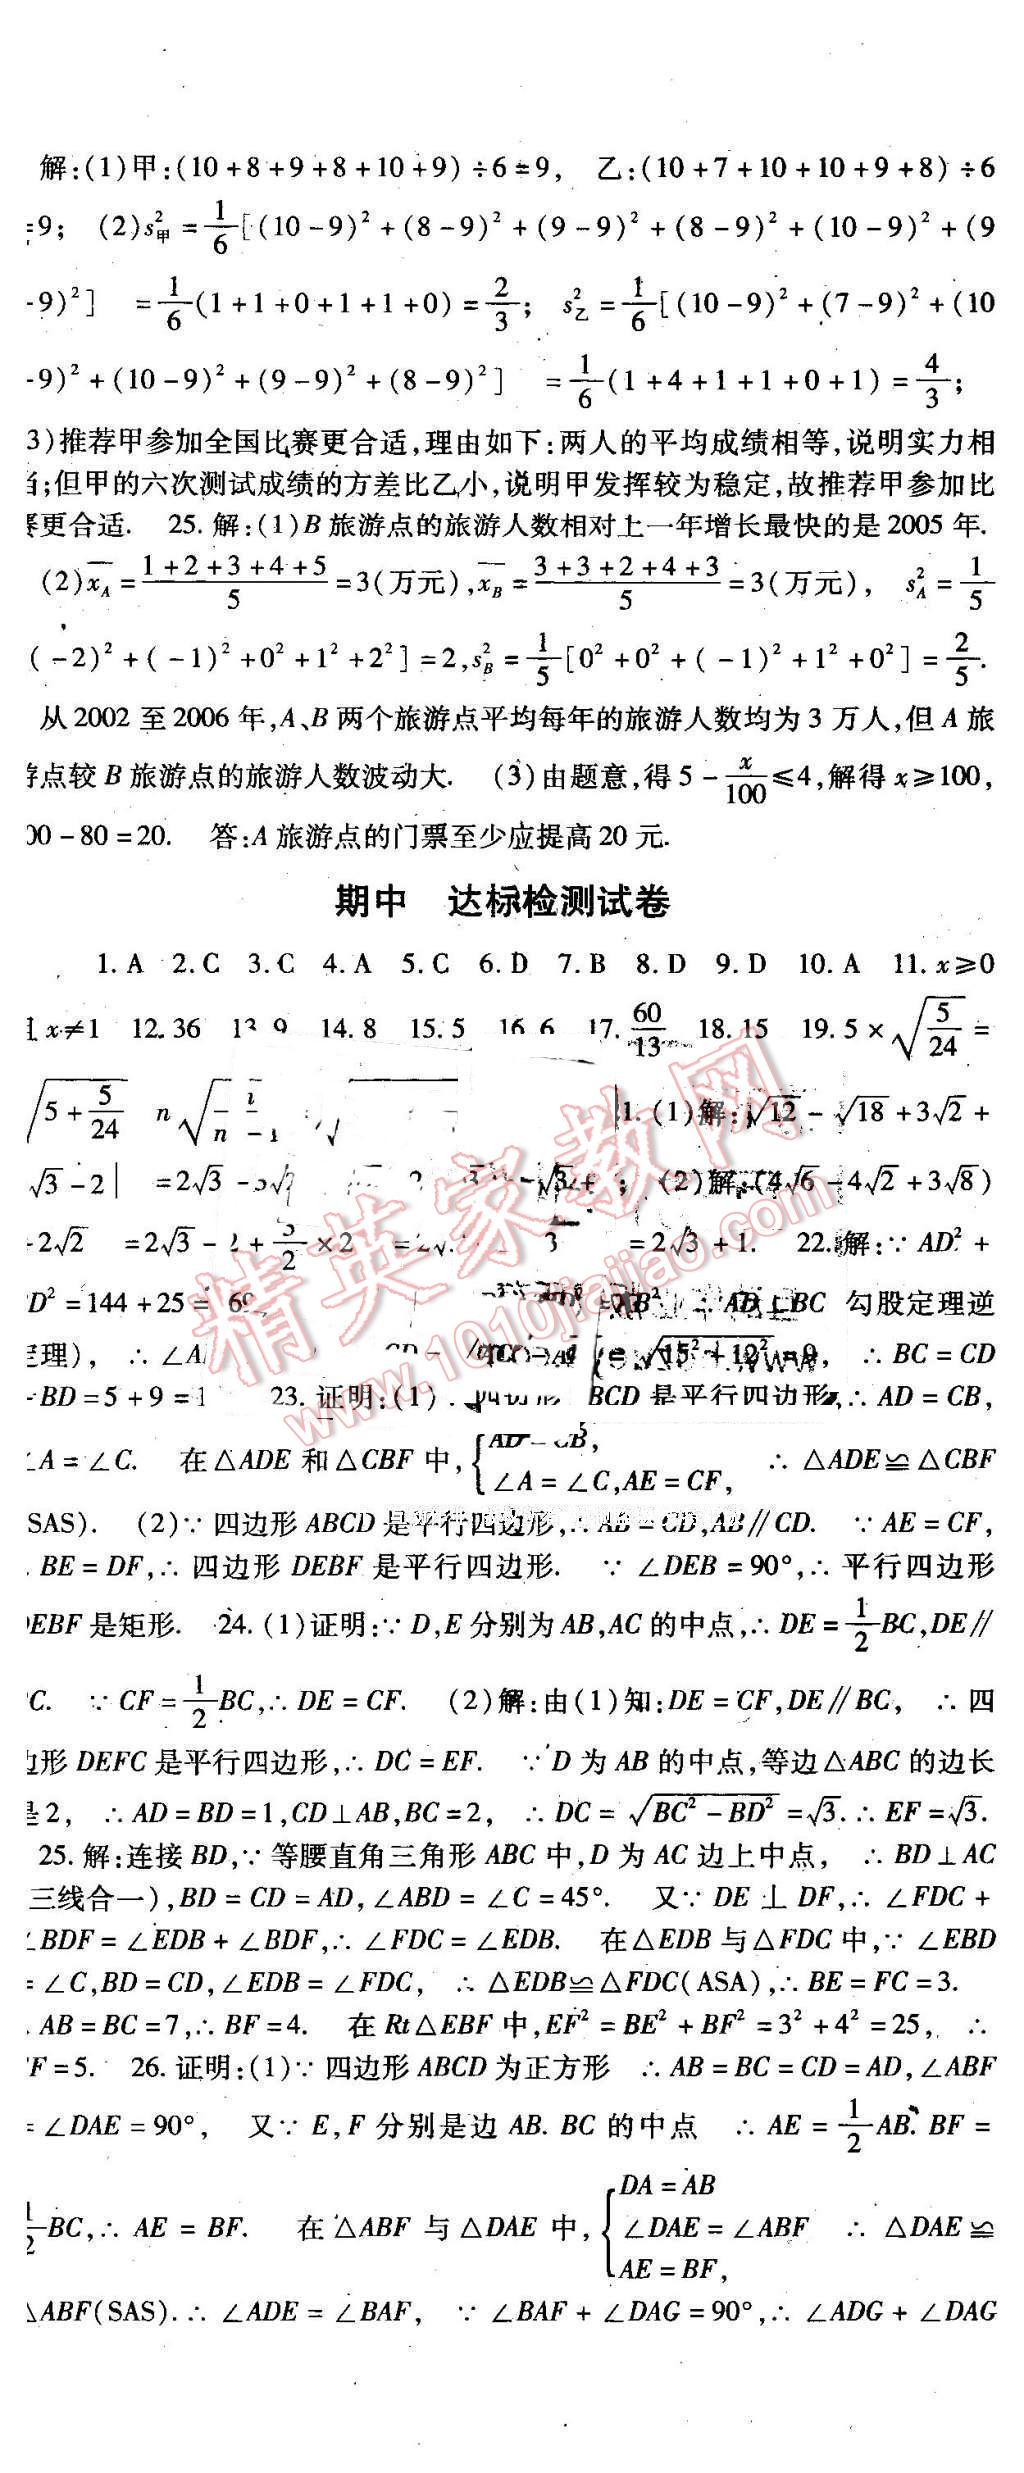 解:(1)甲:(10+8+9+8+10+9)÷6=9, 乙:(10+7+10+10+9+8)÷6
=9; (2)s²甲=1/6[(10-9)²+(8-9)²+(9-9)²+(8-9)²+(10-9)²+(9
-9)²] =1/6(1+1+0+1+1+0)=2/3; s²乙=1/6[(10-9)²+(7-9)²+(10
-9)²+(10-9)²+(9-9)²+(8-9)²] =1/6(1+4+1+1+0+1)=4/3;
3)推荐甲参加全国比赛更合适,理由如下:两人的平均成绩相等,说明实力相
当;但甲的六次测试成绩的方差比乙小,说明甲发挥较为稳定,故推荐甲参加比
赛更合适. 25.解:(1)B旅游点的旅游人数相对上一年增长最快的是2005年.
(2)x̄A=(1+2+3+4+5)/5=3(万元),x̄B=(3+3+2+4+3)/5=3(万元), s²A=1/5
(-2)²+(-1)²+0²+1²+2²]=2,s²B=1/5[0²+0²+(-1)²+1²+0²]=2/5.
从2002至2006年,A、B两个旅游点平均每年的旅游人数均为3万人,但A旅
游点较B旅游点的旅游人数波动大. (3)由题意,得5-x/100≤4,解得x≥100,
00-80=20. 答:A旅游点的门票至少应提高20元.
期中 达标检测试卷
1.A 2.C 3.C 4.A 5.C 6.D 7.B 8.D 9.D 10.A 11.x≥0
且x≠1 12.36 13.9 14.8 15.5 16.6 17.60/13 18.15 19.5×√(5/24)=
√(5+5/24) n√ 1.(1)解:√12-√18+3√2+
√3-2| =2√3 ; (2)解:(4√6-4√2+3√8)
÷2√2 =2√3- +3/2×2 =2√3+1. 22.解:∵AD²+
D²=144+25= ∴AD⊥BC 勾股定理逆
定理), ∴∠A ∴BC=CD
+BD=5+9=1 23.证明:(1) 四边形 BCD是平行四边形,∴AD=CB,
∠A=∠C. 在△ADE和△CBF中,{AD=CB, ∠A=∠C,AE=CF, ∴△ADE≌△CBF
SAS). (2)∵四边形ABCD是平行四边形,∴AB=CD,AB∥CD. ∵AE=CF,
BE=DF,∴四边形DEBF是平行四边形. ∵∠DEB=90°,∴平行四边形
DEBF是矩形. 24.(1)证明:∵D,E分别为AB,AC的中点,∴DE=1/2BC,DE∥
C. ∵CF=1/2BC,∴DE=CF. (2)解:由(1)知:DE=CF,DE∥BC, ∴四
边形DEFC是平行四边形,∴DC=EF. ∵D为AB的中点,等边△ABC的边长
是2, ∴AD=BD=1,CD⊥AB,BC=2, ∴DC=√(BC²-BD²)=√3.∴EF=√3.
25.解:连接BD,∵等腰直角三角形ABC中,D为AC边上中点, ∴BD⊥AC
三线合一),BD=CD=AD,∠ABD=∠C=45°. 又∵DE⊥DF,∴∠FDC+
∠BDF=∠EDB+∠BDF,∴∠FDC=∠EDB. 在△EDB与△FDC中,∵∠EBD
=∠C,BD=CD,∠EDB=∠FDC, ∴△EDB≌△FDC(ASA),∴BE=FC=3.
AB=BC=7,∴BF=4. 在Rt△EBF中,EF²=BE²+BF²=3²+4²=25, ∴
F=5. 26.证明:(1)∵四边形ABCD为正方形 ∴AB=BC=CD=AD,∠ABF
=∠DAE=90°, 又∵E,F分别是边AB.BC的中点 ∴AE=1/2AB.BF=
1/2BC,∴AE=BF. 在△ABF与△DAE中,{DA=AB ∠DAE=∠ABF AE=BF, ∴△DAE≌
△ABF(SAS).∴∠ADE=∠BAF, ∵∠BAF+∠DAG=90°,∴∠ADG+∠DAG
精英家教网
www.1010jiajiao.com